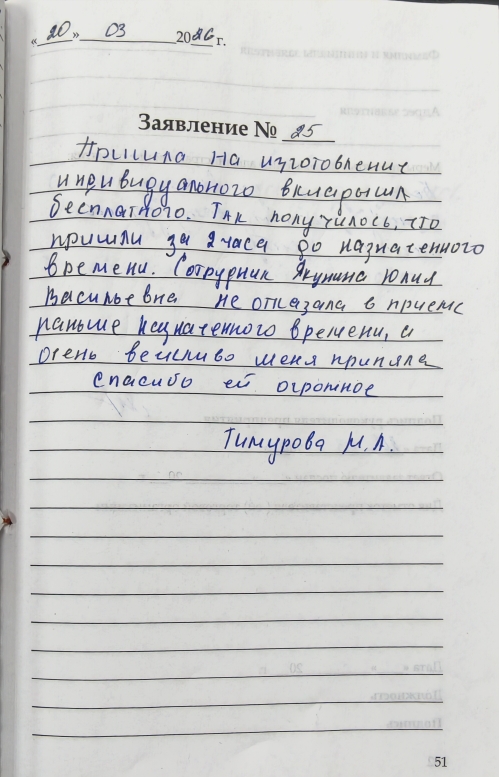 «20» 03 2026 г.
Заявление № 25
Пришла на изготовление
индивидуального вкладыша
бесплатного. Так получилось, что
пришли за 2 часа до назначенного
времени. Сотрудник Якунина Юлия
Васильевна не отказала в приеме
раньше назначенного времени, и
очень вежливо меня приняла
Спасибо ей огромное
Тимурова М.А.
51